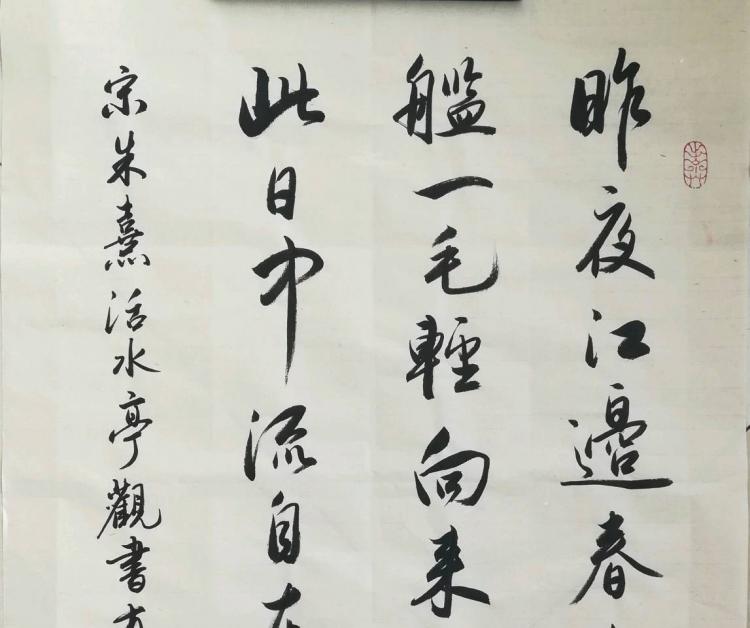 昨夜江邊春
艦一毛輕向来
此日中流自在
宋朱熹活水亭觀書有